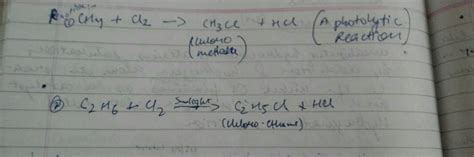 ① CH4 + Cl2 → CH3Cl + HCl (A photolytic Reaction)
(Chloro methane)
② C2H6 + Cl2 Sunlight→ C2H5Cl + HCl
(Chloro-ethane)